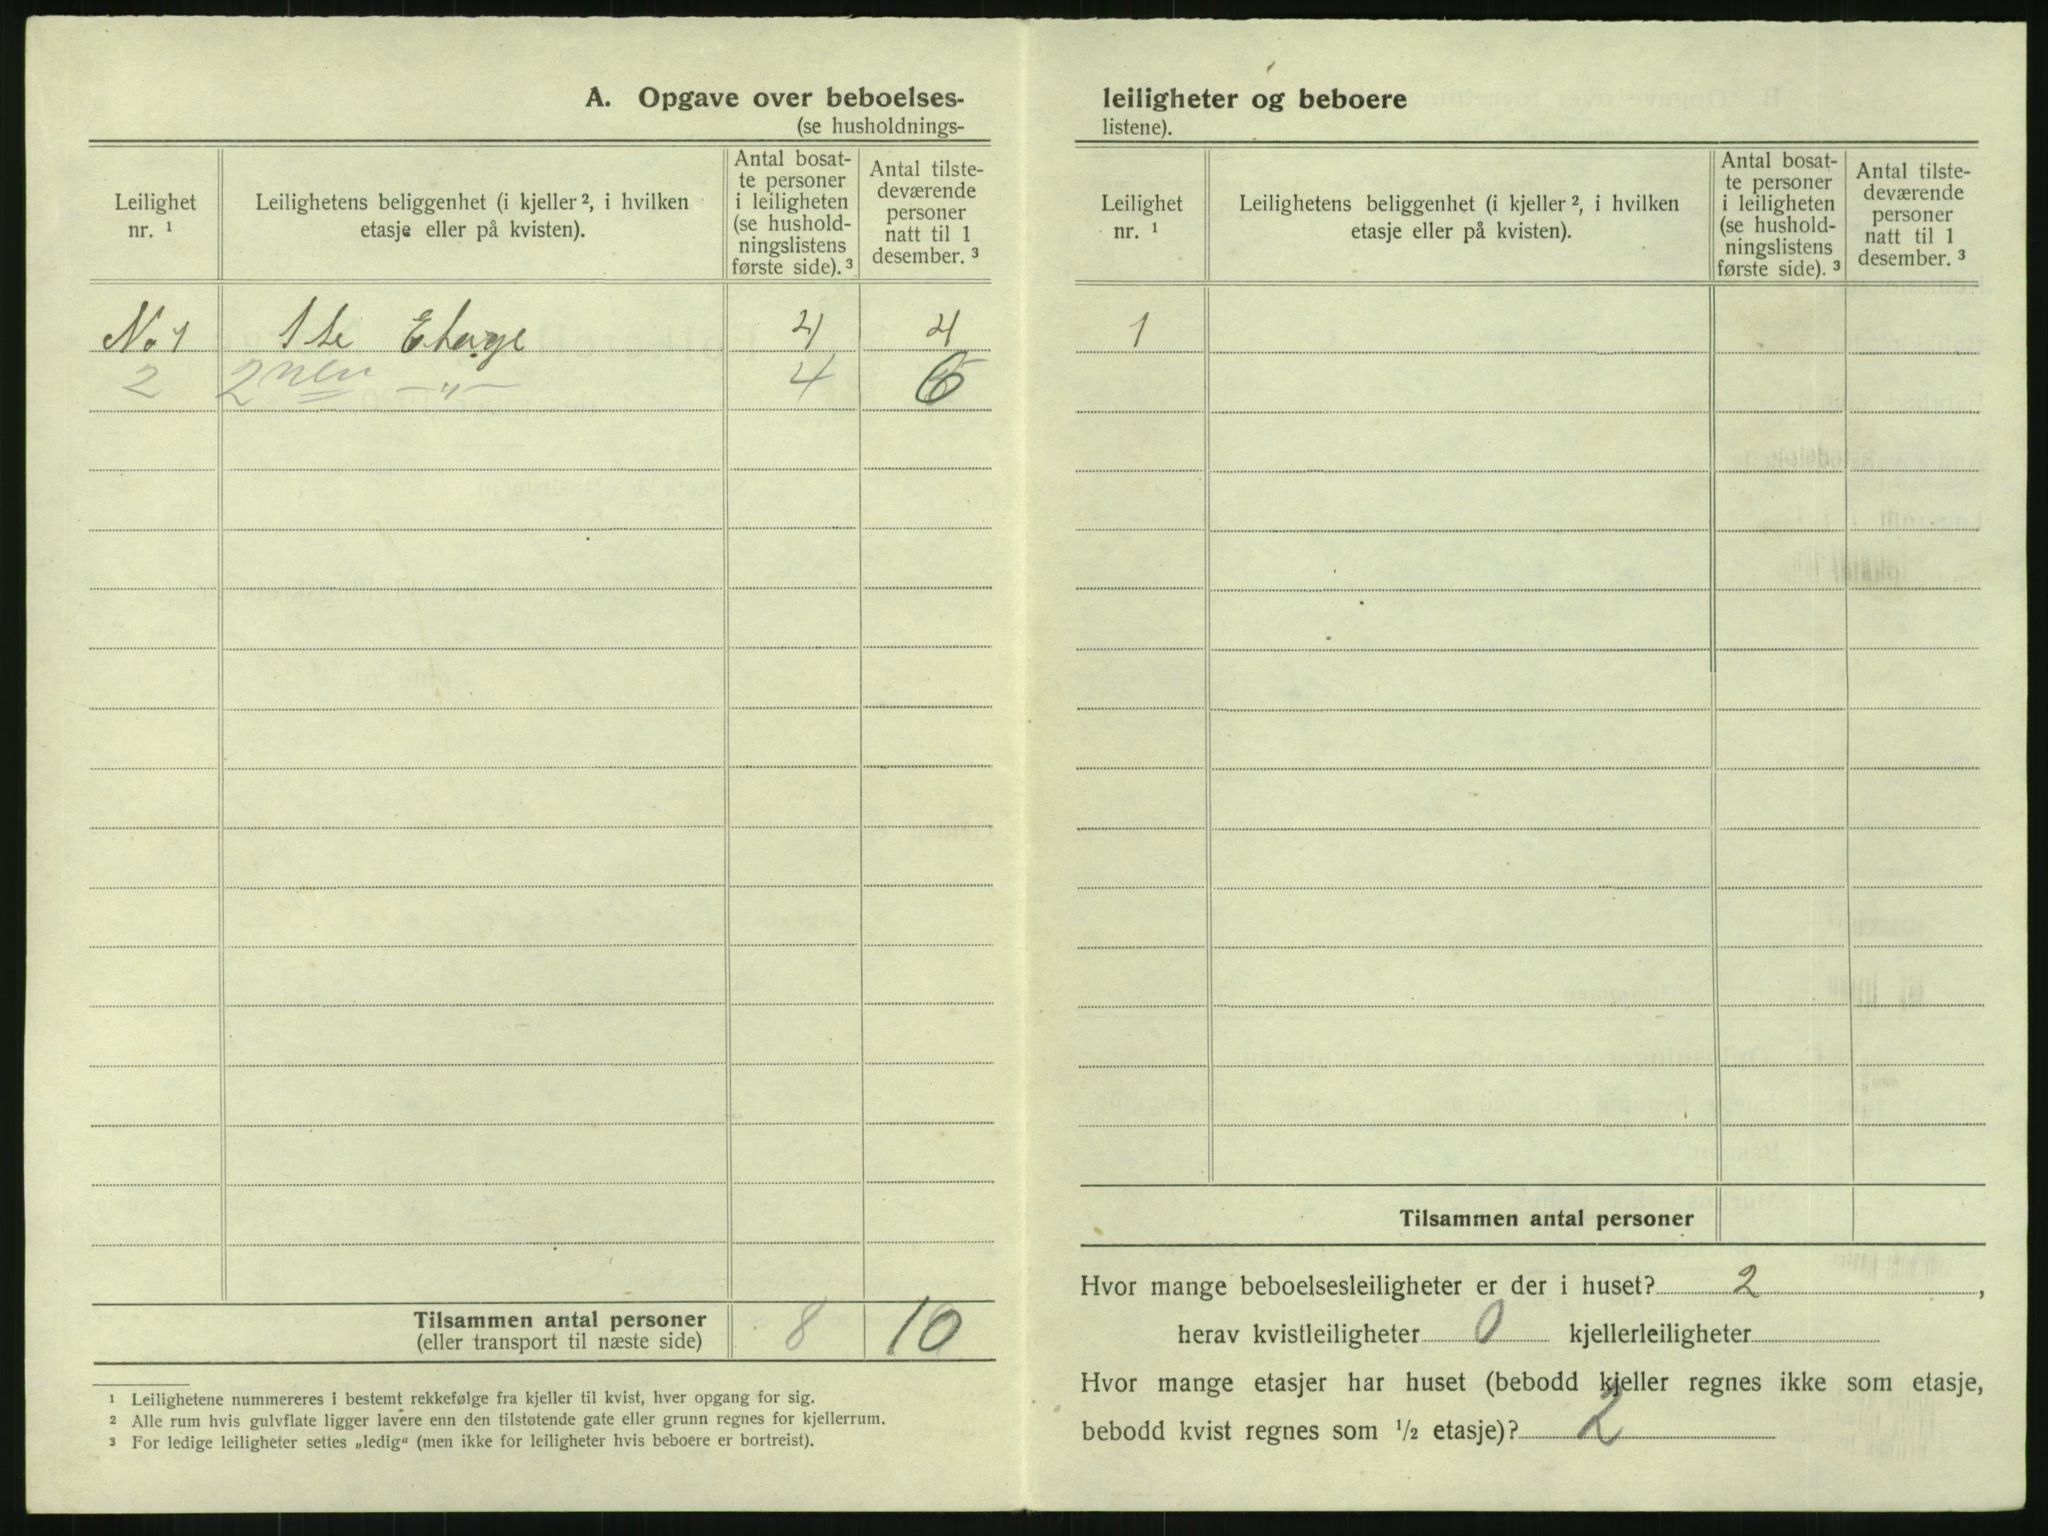 A. Opgave over beboelses-
(se husholdnings-
Leilighet nr. ¹
Leilighetens beliggenhet (i kjeller ², i hvilken etasje eller på kvisten).
Antal bosat-
te personer
i leiligheten
(se hushold-
ningslistens
første side). ³
Antal tilste-
deværende
personer
natt til 1
desember. ³
No 1 1ste Etage 4 4
2 2nen —„— 4 6
Tilsammen antal personer 8 10
(eller transport til næste side)
¹ Leilighetene nummereres i bestemt rekkefølge fra kjeller til kvist, hver opgang for sig.
² Alle rum hvis gulvflate ligger lavere enn den tilstøtende gate eller grunn regnes for kjellerrum.
³ For ledige leiligheter settes „ledig“ (men ikke for leiligheter hvis beboere er bortreist).
leiligheter og beboere
listene).
Leilighet nr. ¹
Leilighetens beliggenhet (i kjeller ², i hvilken etasje eller på kvisten).
Antal bosat-
te personer
i leiligheten
(se hushold-
ningslistens
første side). ³
Antal tilste-
deværende
personer
natt til 1
desember. ³
1
Tilsammen antal personer
Hvor mange beboelsesleiligheter er der i huset? 2 ,
herav kvistleiligheter 0 kjellerleiligheter
Hvor mange etasjer har huset (bebodd kjeller regnes ikke som etasje,
bebodd kvist regnes som ½ etasje)? 2